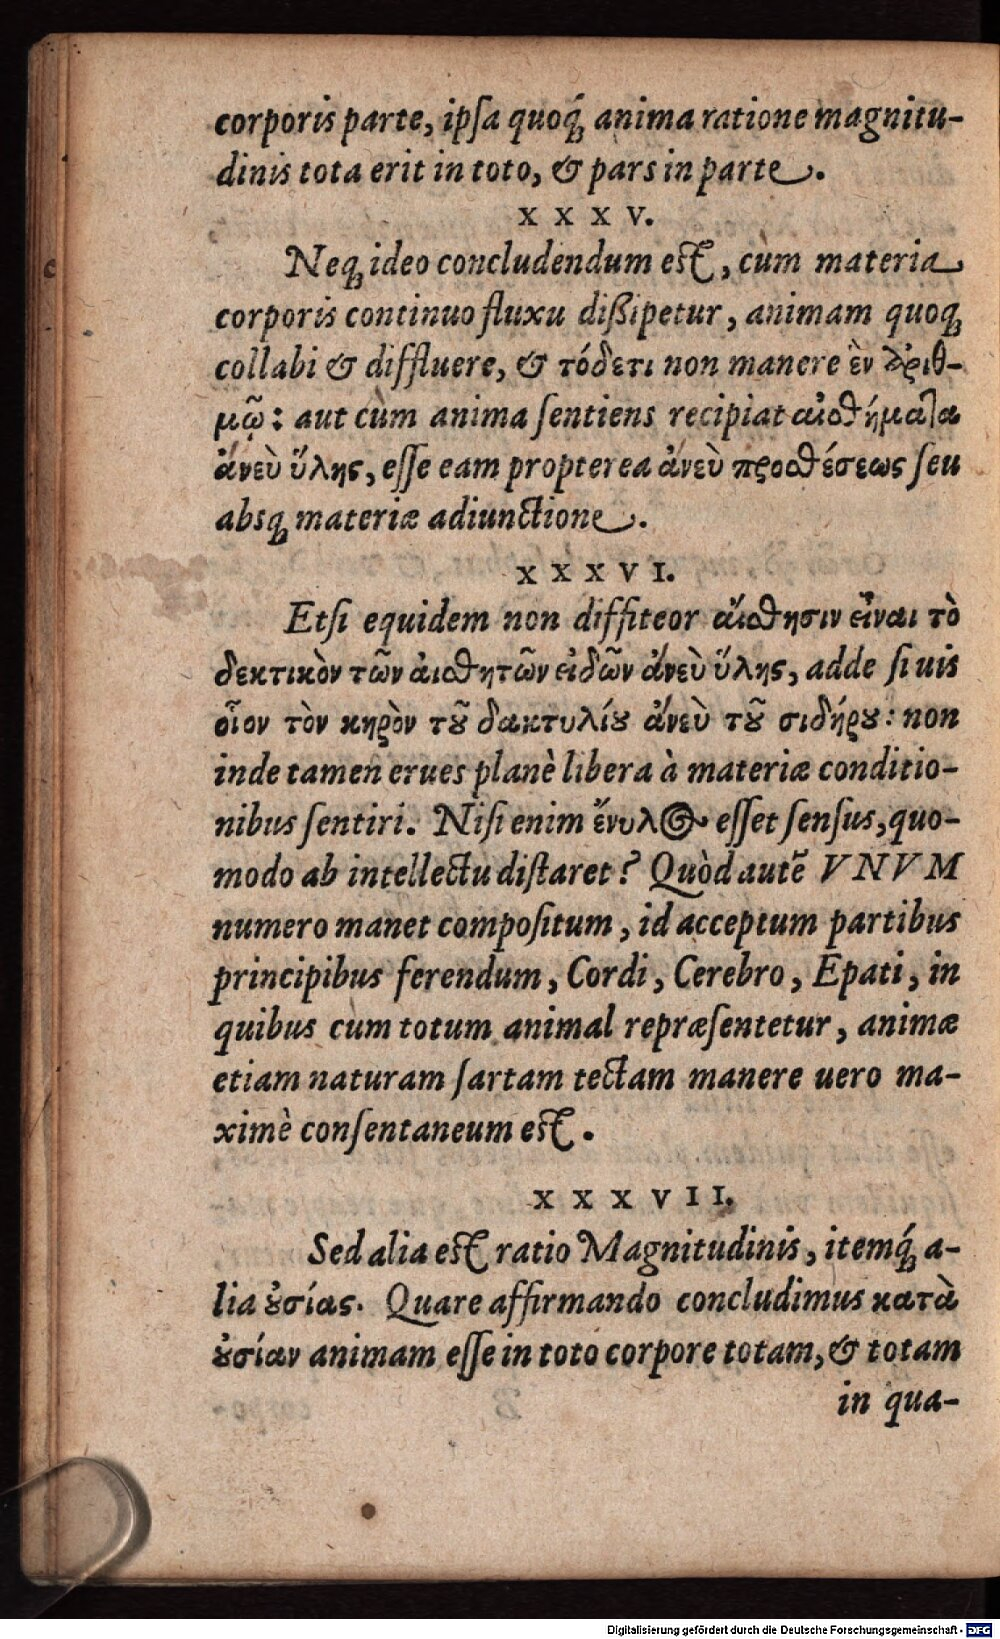 corporis parte, ipſa quoq́ꝫ anima ratione magnitu-
dinis tota erit in toto, & pars in parte.
XXXV.
Neqꝫ ideo concludendum eſt, cùm materia
corporis continuo fluxu dißipetur, animam quoqꝫ
collabi & diffluere, & τόδετι non manere ἐν ἀριθ-
μῷ: aut cùm anima ſentiens recipiat αἰσθήματα
ἀνεὺ ὕλης, eſſe eam propterea ἀνεὺ προσθέσεως ſeu
absqꝫ materiæ adiunctione.
XXXVI.
Etſi equidem non diffiteor αἴσθησιν εἶναι τὸ
δεκτικὸν τῶν ἀισθητῶν ἐιδῶν ἀνεὺ ὕλης, adde ſi uis
οἷον τὸν κηρὸν τȣ͂ δακτυλίȣ ἀνεὺ τȣ͂ σιδήρȣ: non
inde tamen erues planè libera à materiæ conditio-
nibus ſentiri. Niſi enim ἔνυλος eſſet ſenſus, quo-
modo ab intellectu diſtaret? Quòd autē VNVM
numero manet compoſitum, id acceptum partibus
principibus ferendum, Cordi, Cerebro, Epati, in
quibus cum totum animal repræſentetur, animæ
etiam naturam ſartam tectam manere uero ma-
ximè conſentaneum eſt.
XXXVII.
Sed alia eſt ratio Magnitudinis, itemq́ꝫ a-
lia ȣ̓σίας. Quare affirmando concludimus κατὰ
ȣ̓σίαν animam eſſe in toto corpore totam, & totam
in qua-
Digitalisierung gefördert durch die Deutsche Forschungsgemeinschaft - DFG